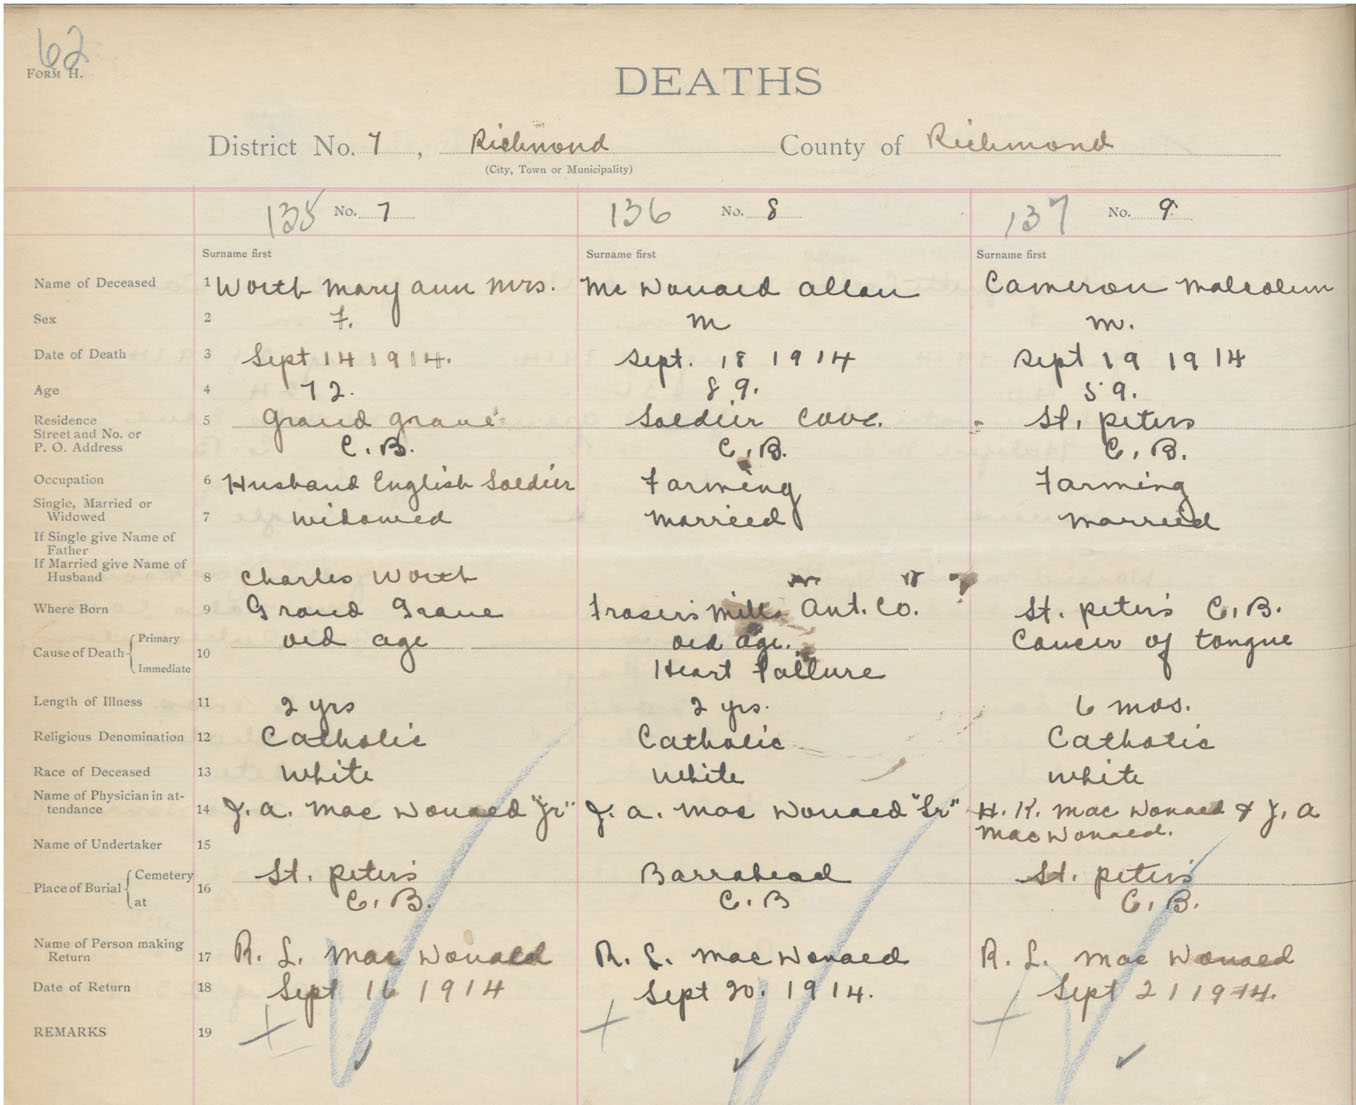 62
FORM H.
DEATHS
District No. 7, Richmond County of Richmond
(City, Town or Municipality)
135 No. 7 136 No. 8 137 No. 9
Surname first Surname first Surname first
Name of Deceased 1 Worth Mary ann Mrs. Mc Donald Allan Cameron Malcolum
Sex 2 F. M M.
Date of Death 3 Sept 14 1914. Sept. 18 1914 Sept 19 1914
Age 4 72. 89. 59.
Residence 5 Grand Grave Soldier Cove. St. Peters
Street and No. or
P. O. Address C. B. C. B. C. B.
Occupation 6 Husband English Soldier Farming Farming
Single, Married or
Widowed 7 Widowed Married Married
If Single give Name of
Father
If Married give Name of
Husband 8 Charles Worth
Where Born 9 Grand Grave Frasers Mills Ant. Co. St. Peter's C. B.
Cause of Death Primary 10 old age old age. Cancer of tongue
Immediate Heart Failure
Length of Illness 11 2 yrs 2 yrs. 6 mos.
Religious Denomination 12 Catholic Catholic Catholic
Race of Deceased 13 White White White
Name of Physician in at-
tendance 14 J. A. Mac Donald "Jr" J. A. Mac Donald "Sr" H. K. Mac Donald & J. A
MacDonald.
Name of Undertaker 15
Place of Burial Cemetery 16 St. Peter's Barrahead St. Peter's
at C. B. C. B C. B.
Name of Person making
Return 17 R. L. Mac Donald R. L. Mac Donald R. L. Mac Donald
Date of Return 18 Sept 16 1914 Sept 20. 1914. Sept 21 1914.
REMARKS 19